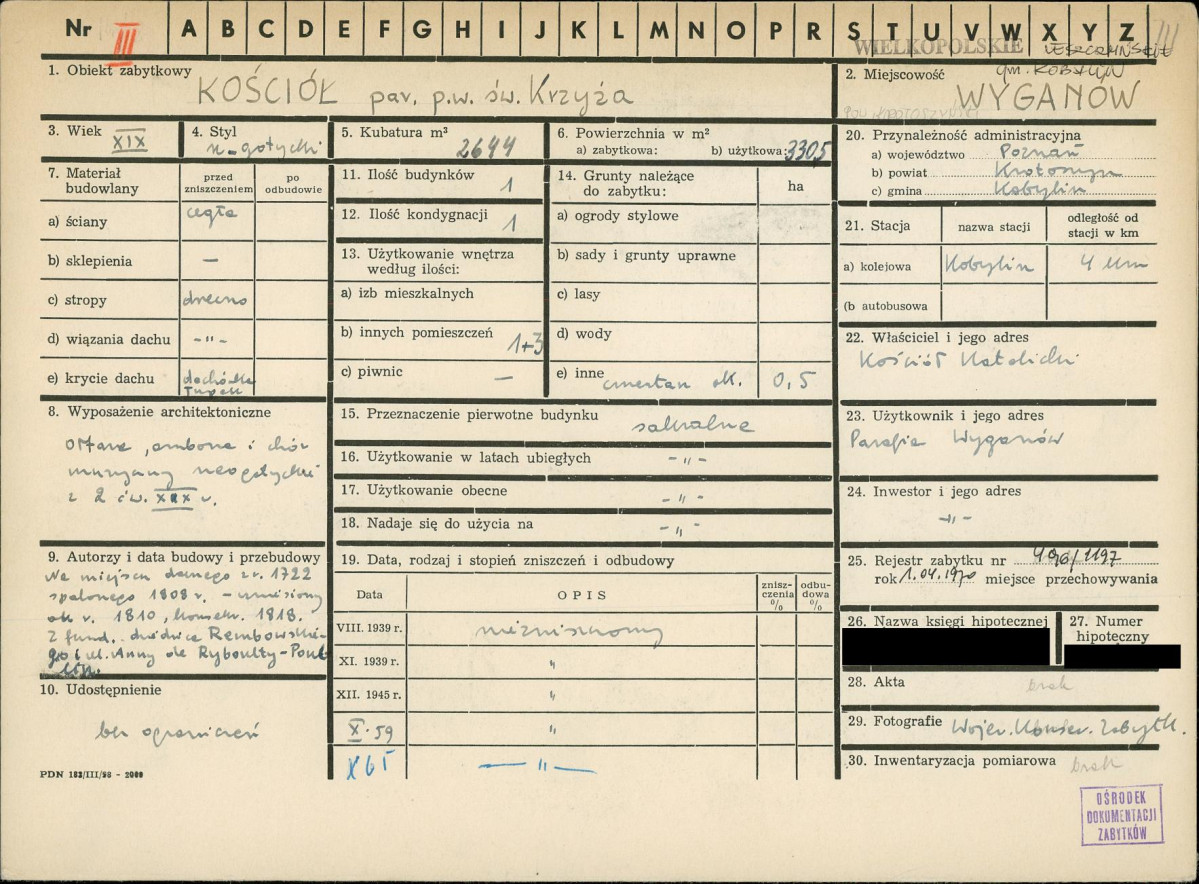 Nr III A B C D E F G H I J K L M N O P R S T U V W X Y Z
WIELKOPOLSKIE LESZCZYŃSKIE
1. Obiekt zabytkowy
KOŚCIÓŁ par. p.w. św. Krzyża
2. Miejscowość gm. KOBYLIN
WYGANÓW
3. Wiek
XIX
4. Styl
n-gotycki
5. Kubatura m³
2644
6. Powierzchnia w m²
a) zabytkowa: b) użytkowa: 330,5
7. Materiał budowlany
przed zniszczeniem
po odbudowie
a) ściany cegła
b) sklepienia —
c) stropy drewno
d) wiązania dachu -"-
e) krycie dachu dachówka
łupek
8. Wyposażenie architektoniczne
Ołtarz, ambona i chór
murowany neogotycki
z 2 ćw. XIX w.
9. Autorzy i data budowy i przebudowy
Na miejscu dawnego z r. 1722
spalonego 1808 r. - wzniesiony
ok r. 1810, konsekr. 1818.
Z fund. dziedzica Rembowskie-
go i ul. Anny de
10. Udostępnienie
bez ograniczeń
PDN 183/III/58 - 2000
11. Ilość budynków 1
12. Ilość kondygnacji 1
13. Użytkowanie wnętrza
według ilości:
a) izb mieszkalnych
b) innych pomieszczeń 1+3
c) piwnic —
14. Grunty należące
do zabytku:
ha
a) ogrody stylowe
b) sady i grunty uprawne
c) lasy
d) wody
e) inne cmentarz ok. 0,5
15. Przeznaczenie pierwotne budynku sakralne
16. Użytkowanie w latach ubiegłych -"-
17. Użytkowanie obecne -"-
18. Nadaje się do użycia na -"-
19. Data, rodzaj i stopień zniszczeń i odbudowy
Data
OPIS
znisz-
czenia
%
odbu-
dowa
%
VIII. 1939 r. niezniszczony
XI. 1939 r. "
XII. 1945 r. "
X. 59 "
X 65 — " —
20. Przynależność administracyjna
a) województwo Poznań
b) powiat Krotoszyn
c) gmina Kobylin
21. Stacja
nazwa stacji
odległość od
stacji w km
a) kolejowa Kobylin 4 km
(b autobusowa
22. Właściciel i jego adres
Kościół Katolicki
23. Użytkownik i jego adres
Parafia Wyganów
24. Inwestor i jego adres
-"-
25. Rejestr zabytku nr 490/1197
rok 1.04.1970 miejsce przechowywania
26. Nazwa księgi hipotecznej
27. Numer
hipoteczny
28. Akta brak
29. Fotografie Wojew. Konser. Zabytk.
30. Inwentaryzacja pomiarowa brak
OŚRODEK
DOKUMENTACJI
ZABYTKÓW